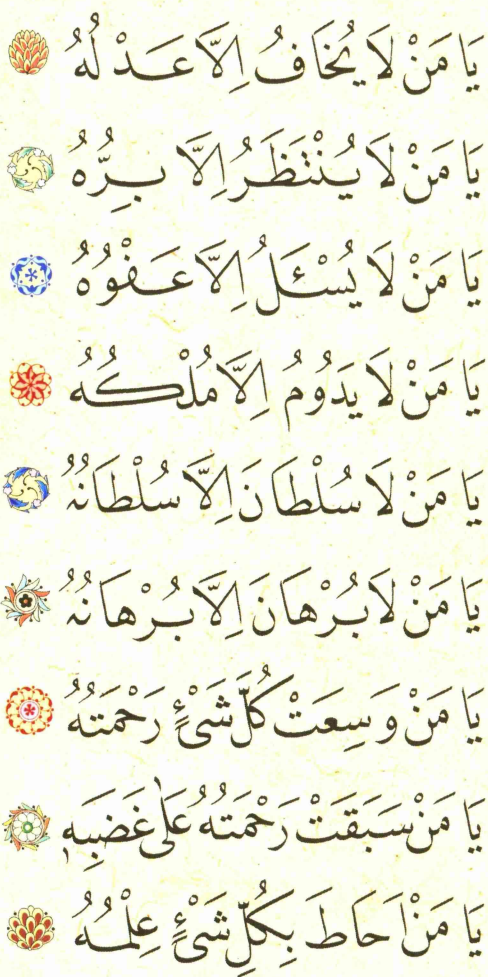 يَا مَنْ لَا يُخَافُ اِلَّا عَدْلُهُ
يَا مَنْ لَا يُنْتَظَرُ اِلَّا بِرُّهُ
يَا مَنْ لَا يُسْئَلُ اِلَّا عَفْوُهُ
يَا مَنْ لَا يَدُومُ اِلَّا مُلْكُهُ
يَا مَنْ لَا سُلْطَانَ اِلَّا سُلْطَانُهُ
يَا مَنْ لَا بُرْهَانَ اِلَّا بُرْهَانُهُ
يَا مَنْ وَسِعَتْ كُلَّ شَيْءٍ رَحْمَتُهُ
يَا مَنْ سَبَقَتْ رَحْمَتُهُ عَلٰى غَضَبِهٖ
يَا مَنْ اَحَاطَ بِكُلِّ شَيْءٍ عِلْمُهُ